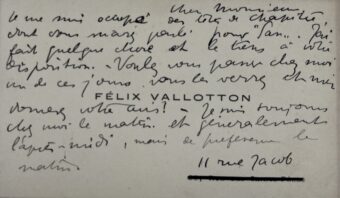 Cher Monsieur
Je me suis occupé des têtes de chapitre
dont vous m'avez parlé pour "Pan". J'ai
fait quelque chose et le tiens à votre
disposition. Voulez vous passer chez moi
un de ces jours. Vous les verrez et me
donnerez votre avis? Je suis toujours
FÉLIX VALLOTTON
chez moi le matin et généralement
l'après-midi, mais de préférence le
matin.
11 rue Jacob